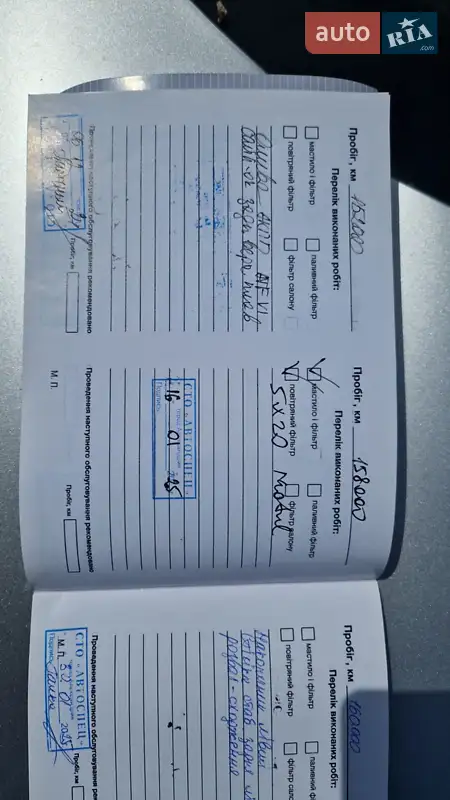 auto RIA.com
Пробіг, км 151000
Перелік виконаних робіт:
мастило і фільтр
паливний фільтр
повітряний фільтр
фільтр салону
Проведення наступного обслуговування рекомендовано
Пробіг, км
Пробіг, км 158000
Перелік виконаних робіт:
мастило і фільтр
паливний фільтр
повітряний фільтр
фільтр салону
5х20 Motul
СТО «АВТОСПЕЦ»
16 01 2025
Підпис
Проведення наступного обслуговування рекомендовано
Пробіг, км
М. П.
Пробіг, км 160000
Перелік виконаних робіт:
мастило і фільтр
паливний ф
повітряний фільтр
фільтр сало
розвал-сходження
Проведення наступного обслуговування рекомендо
СТО «АВТОСПЕЦ»
М. П.
2025
Підпис
Пробіг, км